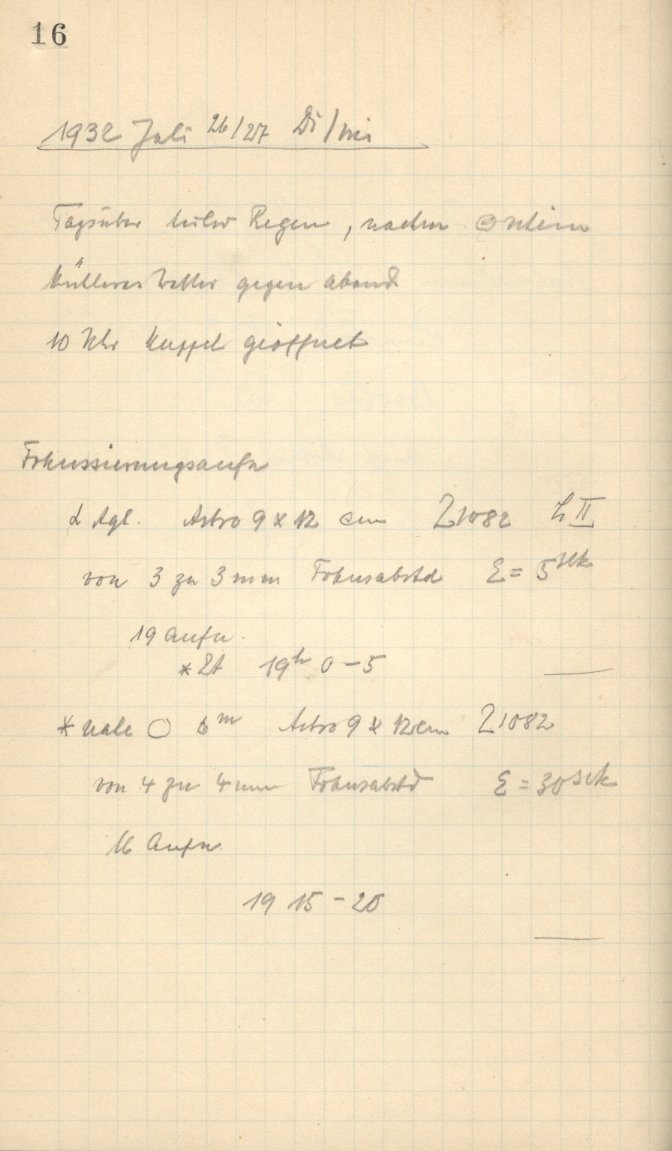 16
1932 Juli 26/27 Di/Mi
Tagsüber Regen, nachm
gegen abend
10 Uhr Kuppel geöffnet
Fokussierungsaufn
α Aql. Astro 9 x 12 cm Z1082 L II
von 3 zu 3 mm Fokusabstd E = 5 sek
19 aufn.
* Zt 19h 0 – 5
* nahe ○ 6m Astro 9 x 12 cm Z1082
von 4 zu 4 mm Fokusabstd E = 30 sek
16 Aufn.
19 15 – 25